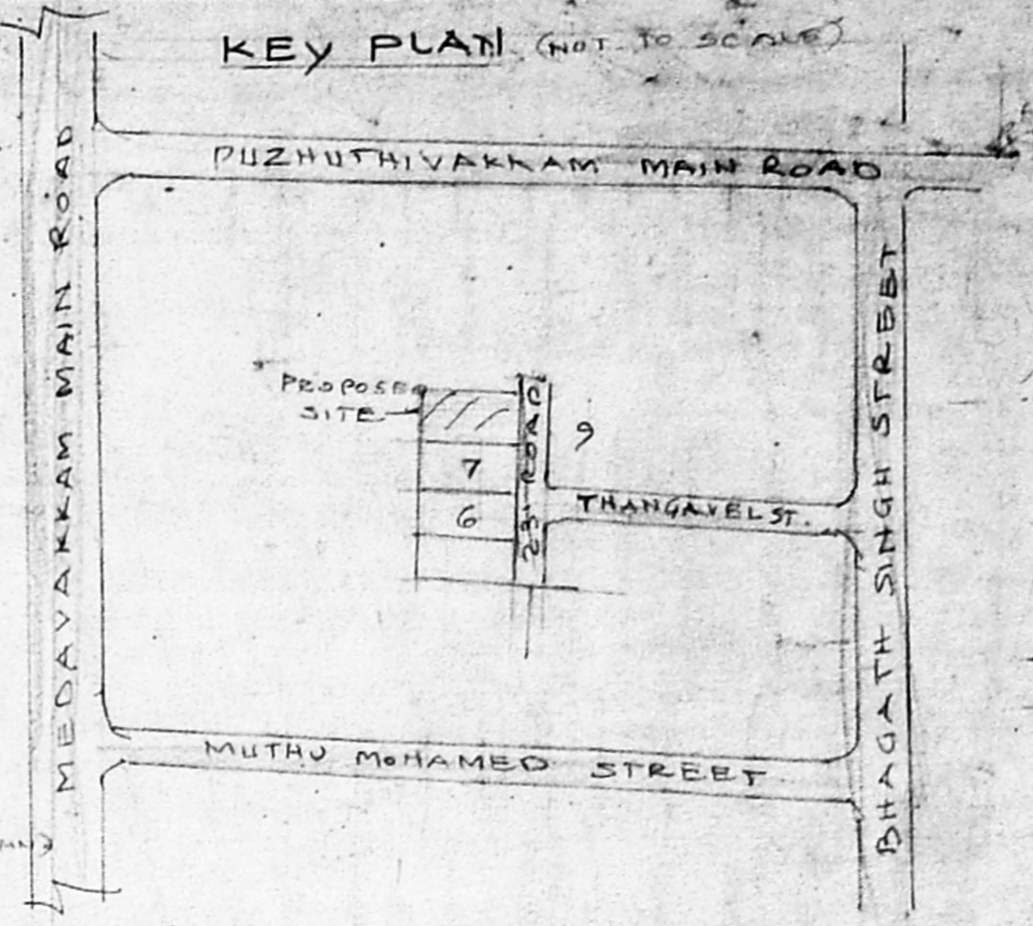 KEY PLAN (NOT TO SCALE)
PUZHUTHIVAKKAM MAIN ROAD
MEDAVAKKAM MAIN ROAD
BHAGATH SINGH STREET
PROPOSED
SITE
23' ROAD
9
7
6
THANGAVEL ST.
MUTHU MOHAMED STREET